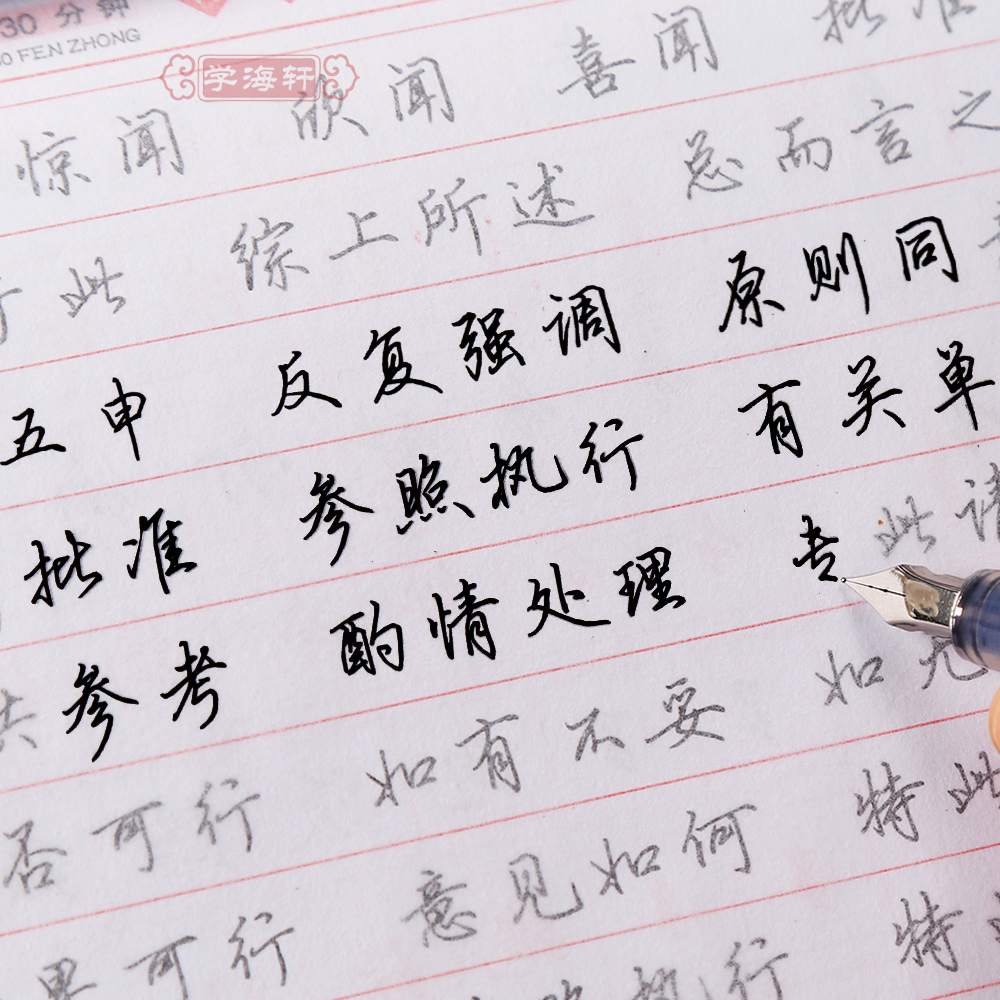 30 分钟
FEN ZHONG
学海轩
惊闻 欣闻 喜闻 批准
此 综上所述 总而言之
五申 反复强调 原则同
批准 参照执行 有关单
参考 酌情处理 专此请
否可行 如有不妥 如无
果可行 意见如何 特此
参照执行 特